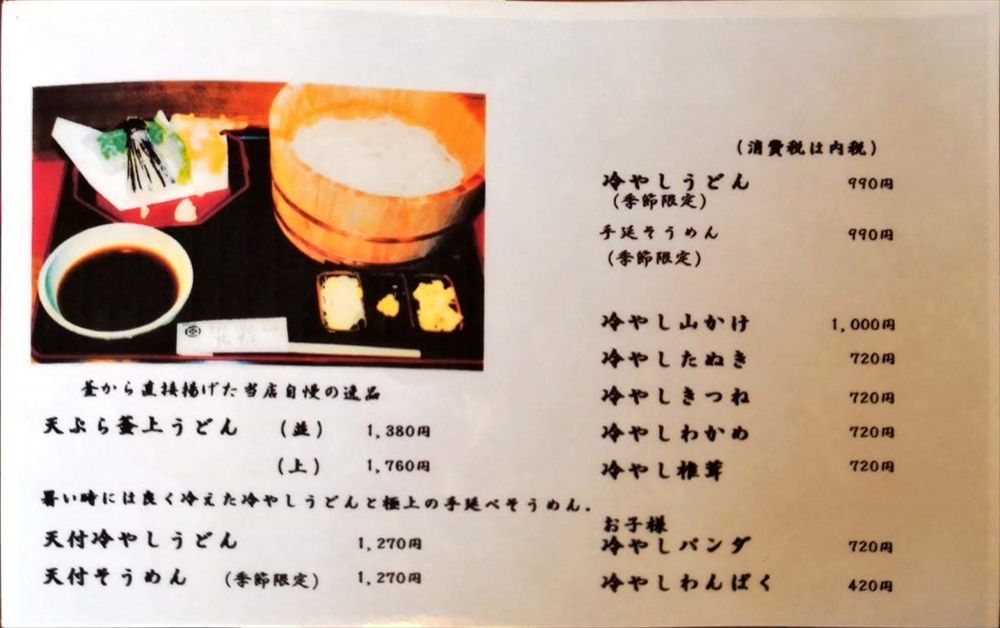 釜から直接揚げた当店自慢の逸品
天ぷら釜上うどん (並) 1,380円
(上) 1,760円
暑い時には良く冷えた冷やしうどんと極上の手延べそうめん.
天付冷やしうどん 1,270円
天付そうめん (季節限定) 1,270円
(消費税は内税)
冷やしうどん 990円
(季節限定)
手延そうめん 990円
(季節限定)
冷やし山かけ 1,000円
冷やしたぬき 720円
冷やしきつね 720円
冷やしわかめ 720円
冷やし椎茸 720円
お子様
冷やしパンダ 720円
冷やしわんぱく 420円